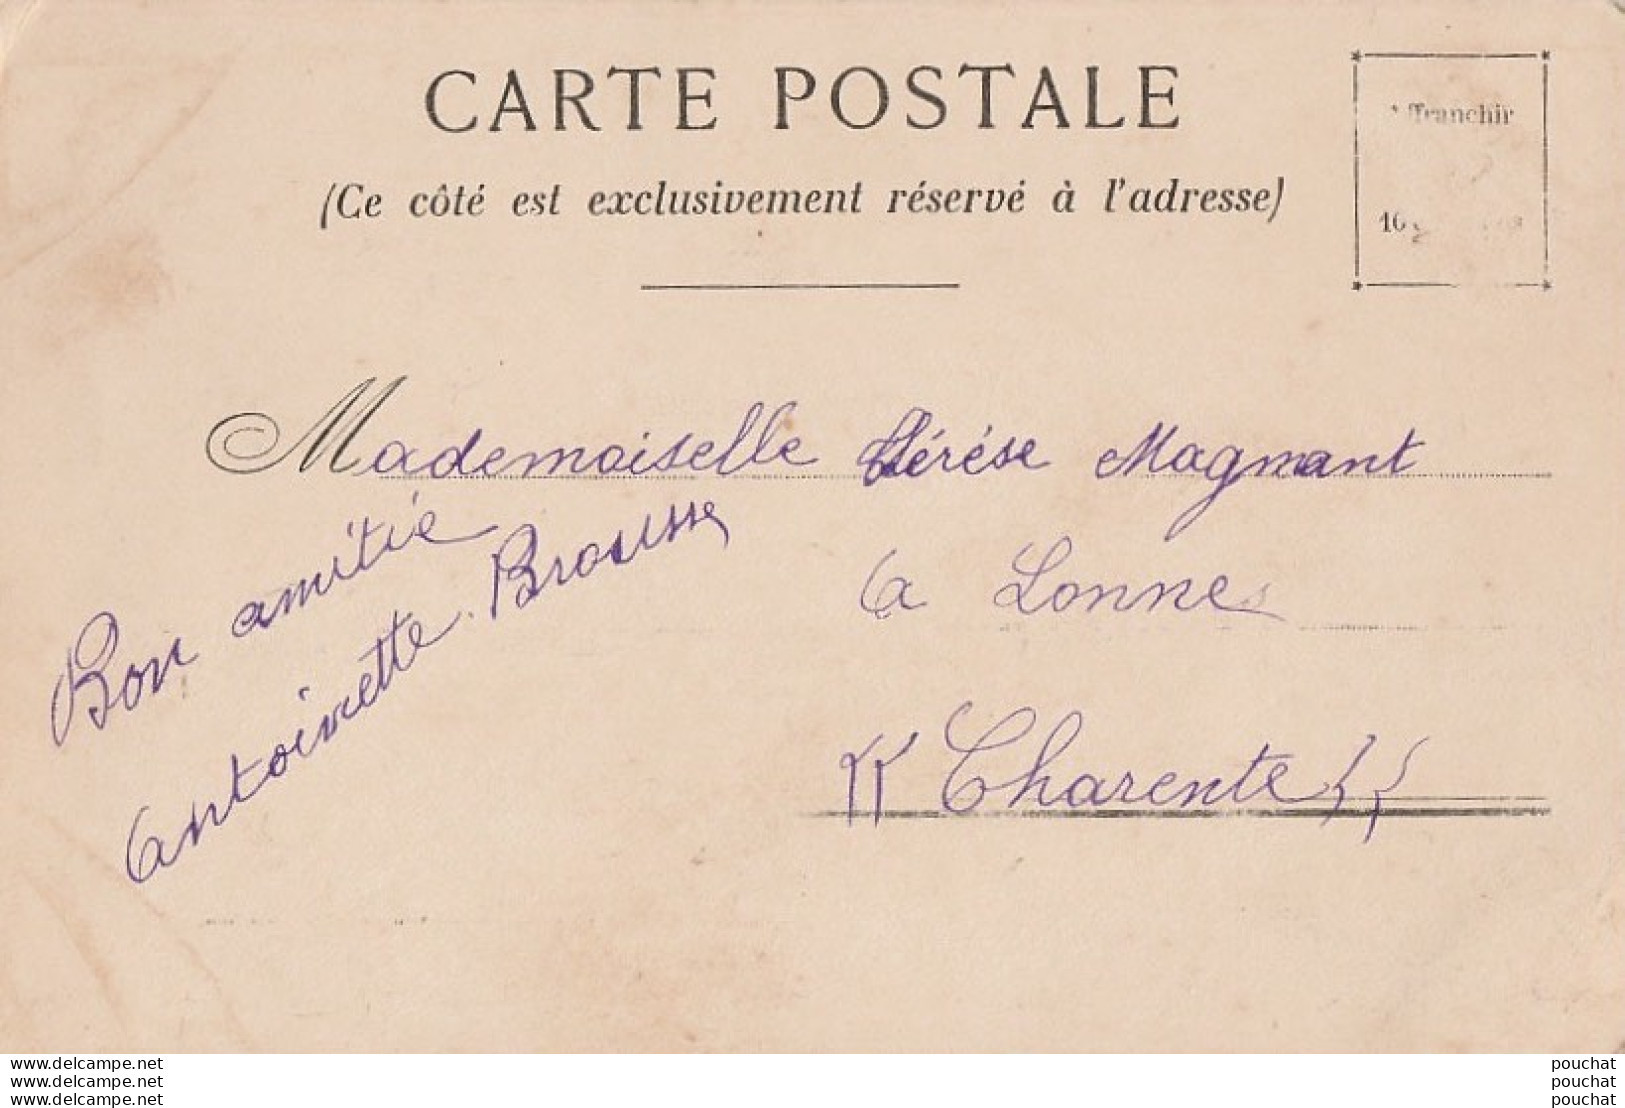 CARTE POSTALE
(Ce côté est exclusivement réservé à l'adresse)
Mademoiselle Térése Magnant
a Lonnes
Charente
Bon amitié
Antoinette Brousse
www.delcampe.net
www.delcampe.net
www.delcampe.net
pouchat
pouchat
pouchat